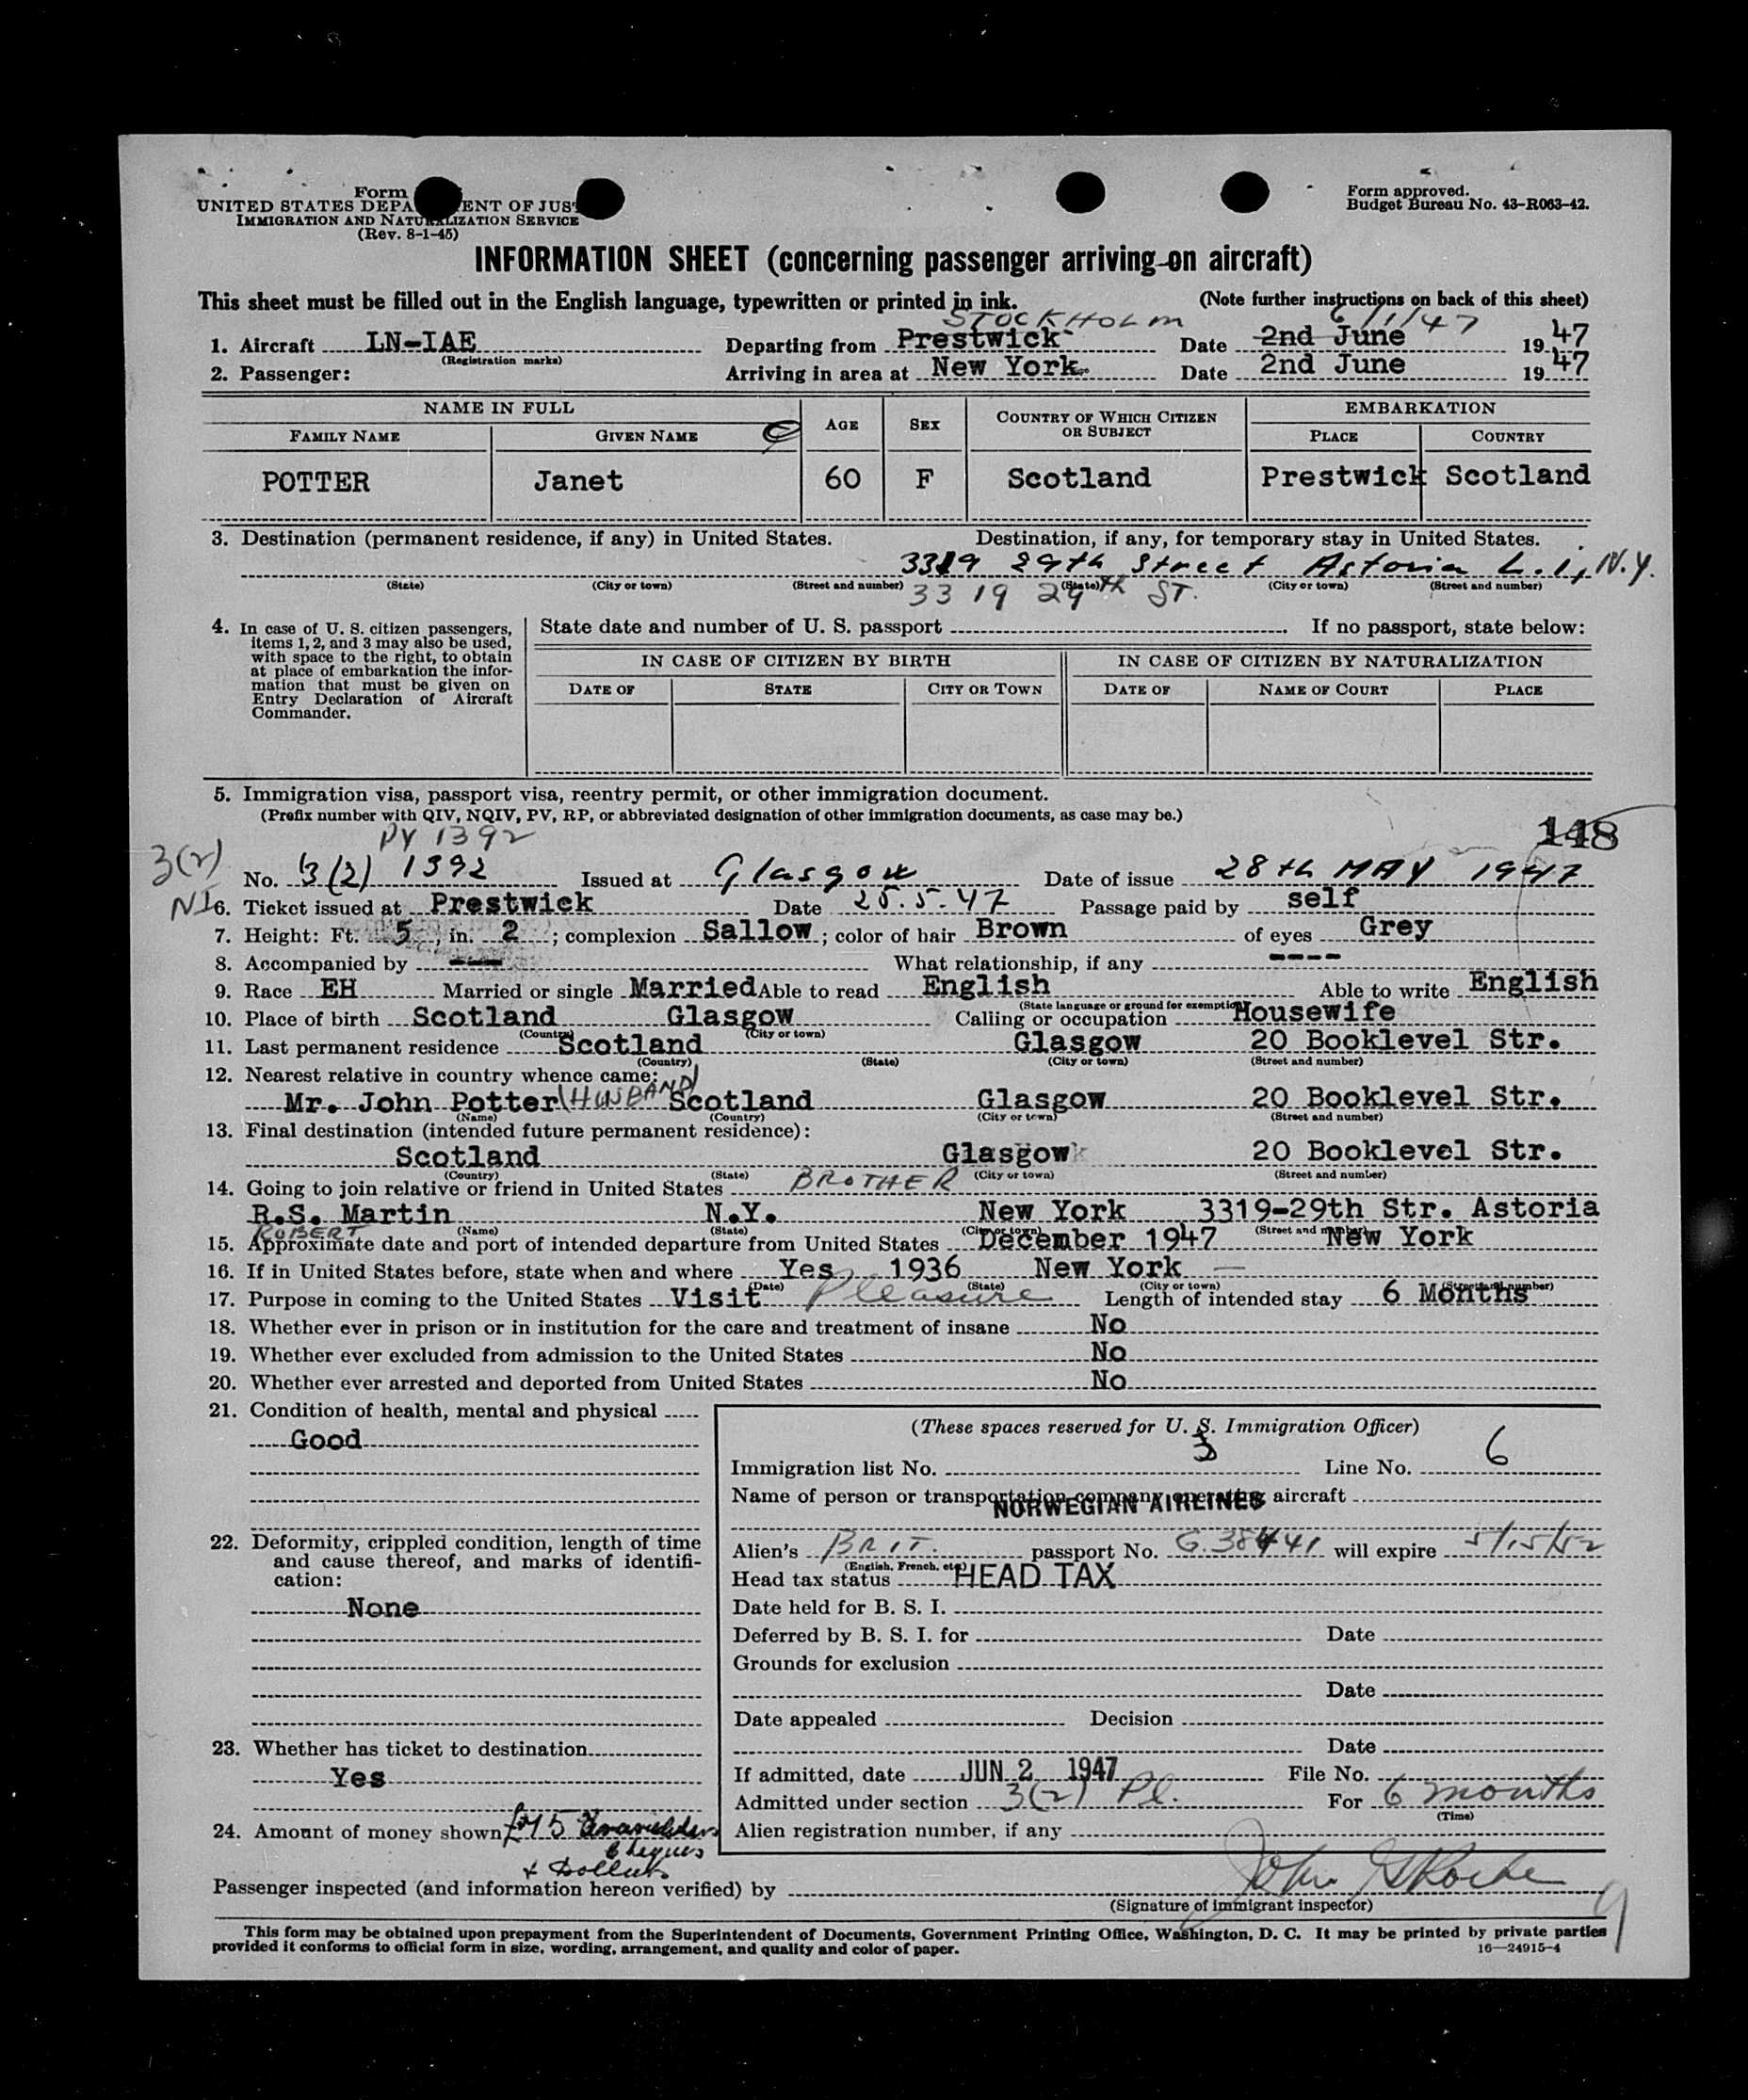 Form
UNITED STATES DEPA ENT OF JUS
IMMIGRATION AND NATURALIZATION SERVICE
(Rev. 8-1-45)
Form approved.
Budget Bureau No. 43-R063-42.
INFORMATION SHEET (concerning passenger arriving on aircraft)
This sheet must be filled out in the English language, typewritten or printed in ink. (Note further instructions on back of this sheet)
STOCKHOLM 6/1/47
1. Aircraft LN-IAE Departing from Prestwick Date 2nd June 1947
(Registration marks)
2. Passenger: Arriving in area at New York. Date 2nd June 1947
NAME IN FULL AGE SEX COUNTRY OF WHICH CITIZEN OR SUBJECT EMBARKATION
FAMILY NAME GIVEN NAME PLACE COUNTRY
POTTER Janet 60 F Scotland Prestwick Scotland
3. Destination (permanent residence, if any) in United States. Destination, if any, for temporary stay in United States.
3319 29th Street Astoria L.I., N.Y.
(State) (City or town) (Street and number) (State) (City or town) (Street and number)
33 19 29th ST.
4. In case of U. S. citizen passengers, items 1, 2, and 3 may also be used, with space to the right, to obtain at place of embarkation the information that must be given on Entry Declaration of Aircraft Commander.
State date and number of U. S. passport . If no passport, state below:
IN CASE OF CITIZEN BY BIRTH IN CASE OF CITIZEN BY NATURALIZATION
DATE OF STATE CITY OR TOWN DATE OF NAME OF COURT PLACE
5. Immigration visa, passport visa, reentry permit, or other immigration document.
(Prefix number with QIV, NQIV, PV, RP, or abbreviated designation of other immigration documents, as case may be.)
PV 1392
148
3(2)
No. 3(2) 1392 Issued at Glasgow Date of issue 28th MAY 1947
NI
6. Ticket issued at Prestwick Date 25.5.47 Passage paid by self
7. Height: Ft. 5, in. 2; complexion Sallow; color of hair Brown of eyes Grey
8. Accompanied by --- What relationship, if any ----
9. Race EH Married or single Married Able to read English Able to write English
(State language or ground for exemption)
10. Place of birth Scotland Glasgow Calling or occupation Housewife
(Country) (City or town)
11. Last permanent residence Scotland Glasgow 20 Booklevel Str.
(Country) (State) (City or town) (Street and number)
12. Nearest relative in country whence came:
Mr. John Potter (HUSBAND) Scotland Glasgow 20 Booklevel Str.
(Name) (Country) (City or town) (Street and number)
13. Final destination (intended future permanent residence):
Scotland Glasgow 20 Booklevel Str.
(Country) (State) (City or town) (Street and number)
14. Going to join relative or friend in United States BROTHER
R.S. Martin N.Y. New York 3319-29th Str. Astoria
ROBERT (Name) (State) (City or town) (Street and number)
15. Approximate date and port of intended departure from United States December 1947 New York
16. If in United States before, state when and where Yes 1936 New York —
(Date) (State) (City or town) (Street and number)
17. Purpose in coming to the United States Visit Pleasure Length of intended stay 6 Months
18. Whether ever in prison or in institution for the care and treatment of insane No
19. Whether ever excluded from admission to the United States No
20. Whether ever arrested and deported from United States No
21. Condition of health, mental and physical
Good
22. Deformity, crippled condition, length of time and cause thereof, and marks of identification:
None
23. Whether has ticket to destination
Yes
24. Amount of money shown £75
Cheques
+ Dollars
(These spaces reserved for U. S. Immigration Officer)
Immigration list No. 3 Line No. 6
Name of person or transportation company operating aircraft
NORWEGIAN AIRLINES
Alien's BRIT. passport No. G.38441 will expire 5/15/52
(English, French, etc.)
Head tax status HEAD TAX
Date held for B. S. I.
Deferred by B. S. I. for Date
Grounds for exclusion
Date
Date appealed Decision
Date
If admitted, date JUN 2 1947 File No.
Admitted under section 3(2) Pl. For 6 months
(Time)
Alien registration number, if any
Passenger inspected (and information hereon verified) by
(Signature of immigrant inspector)
9
This form may be obtained upon prepayment from the Superintendent of Documents, Government Printing Office, Washington, D. C. It may be printed by private parties
provided it conforms to official form in size, wording, arrangement, and quality and color of paper. 16—24915-4